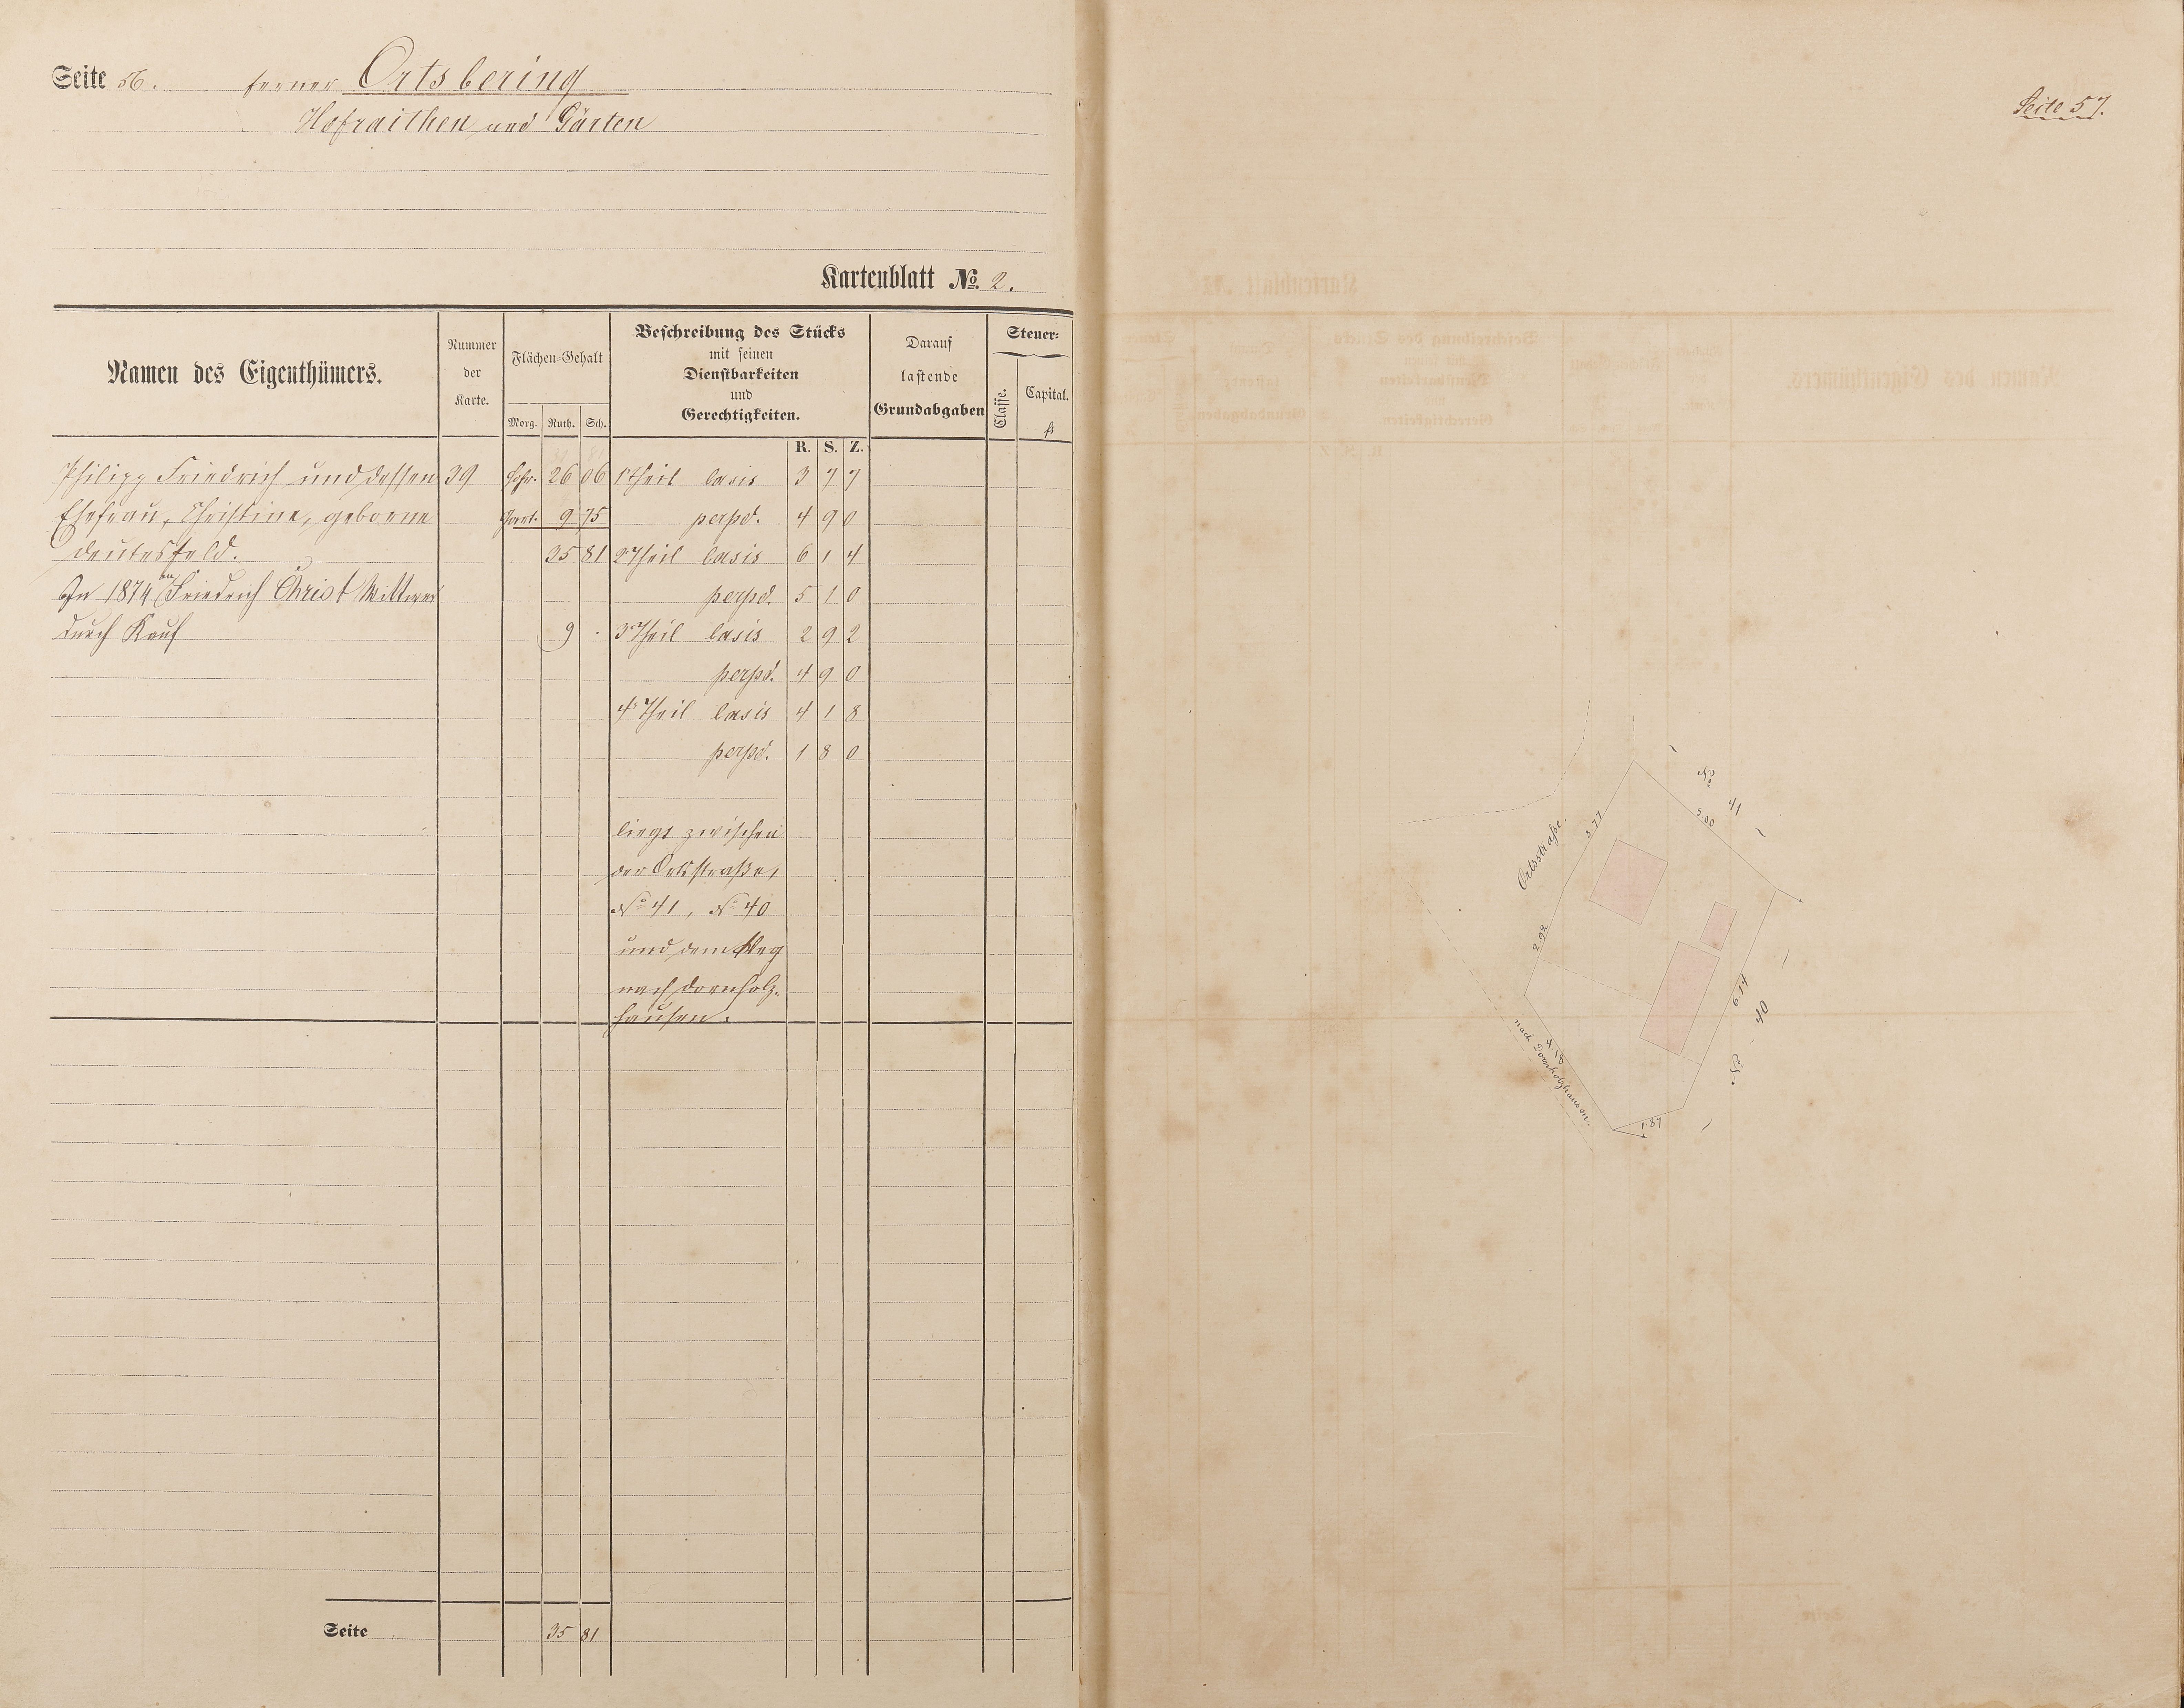 Seite 56. ferner Ortsbering
Hofraithen und Gärten
Kartenblatt No. 2.
Namen des Eigenthümers.
Nummer der Karte.
Flächen-Gehalt
Morg. Ruth. Sch.
Beschreibung des Stücks
mit seinen
Dienstbarkeiten
und
Gerechtigkeiten.
Darauf
lastende
Grundabgaben
Steuer-
Classe.
Capital.
fl
R. S. Z.
Philipp Friedrich und dessen 39 Hofr. 26 06 1 Theil basis 3 7 7
Ehefrau, Christine, geborne Gart. 9 75 perpd. 4 9 0
Deutesfeld. 35 81 2 Theil basis 6 1 4
In 1874 an Friedrich Christ Wittwer perpd. 5 1 0
durch Kauf 9 . 3 Theil basis 2 9 2
perpd. 4 9 0
4 Theil basis 4 1 8
perpd. 1 8 0
liegt zwischen
der Ortsstraße,
No 41, No 40
und dem Weg
nach Dornholz-
hausen.
Seite 35 81
Seite 57.
No. 41
5 00
3 77
Ortsstraße.
2 92
6 14
No. 40
4 18
nach Dornholzhausen.
1.87